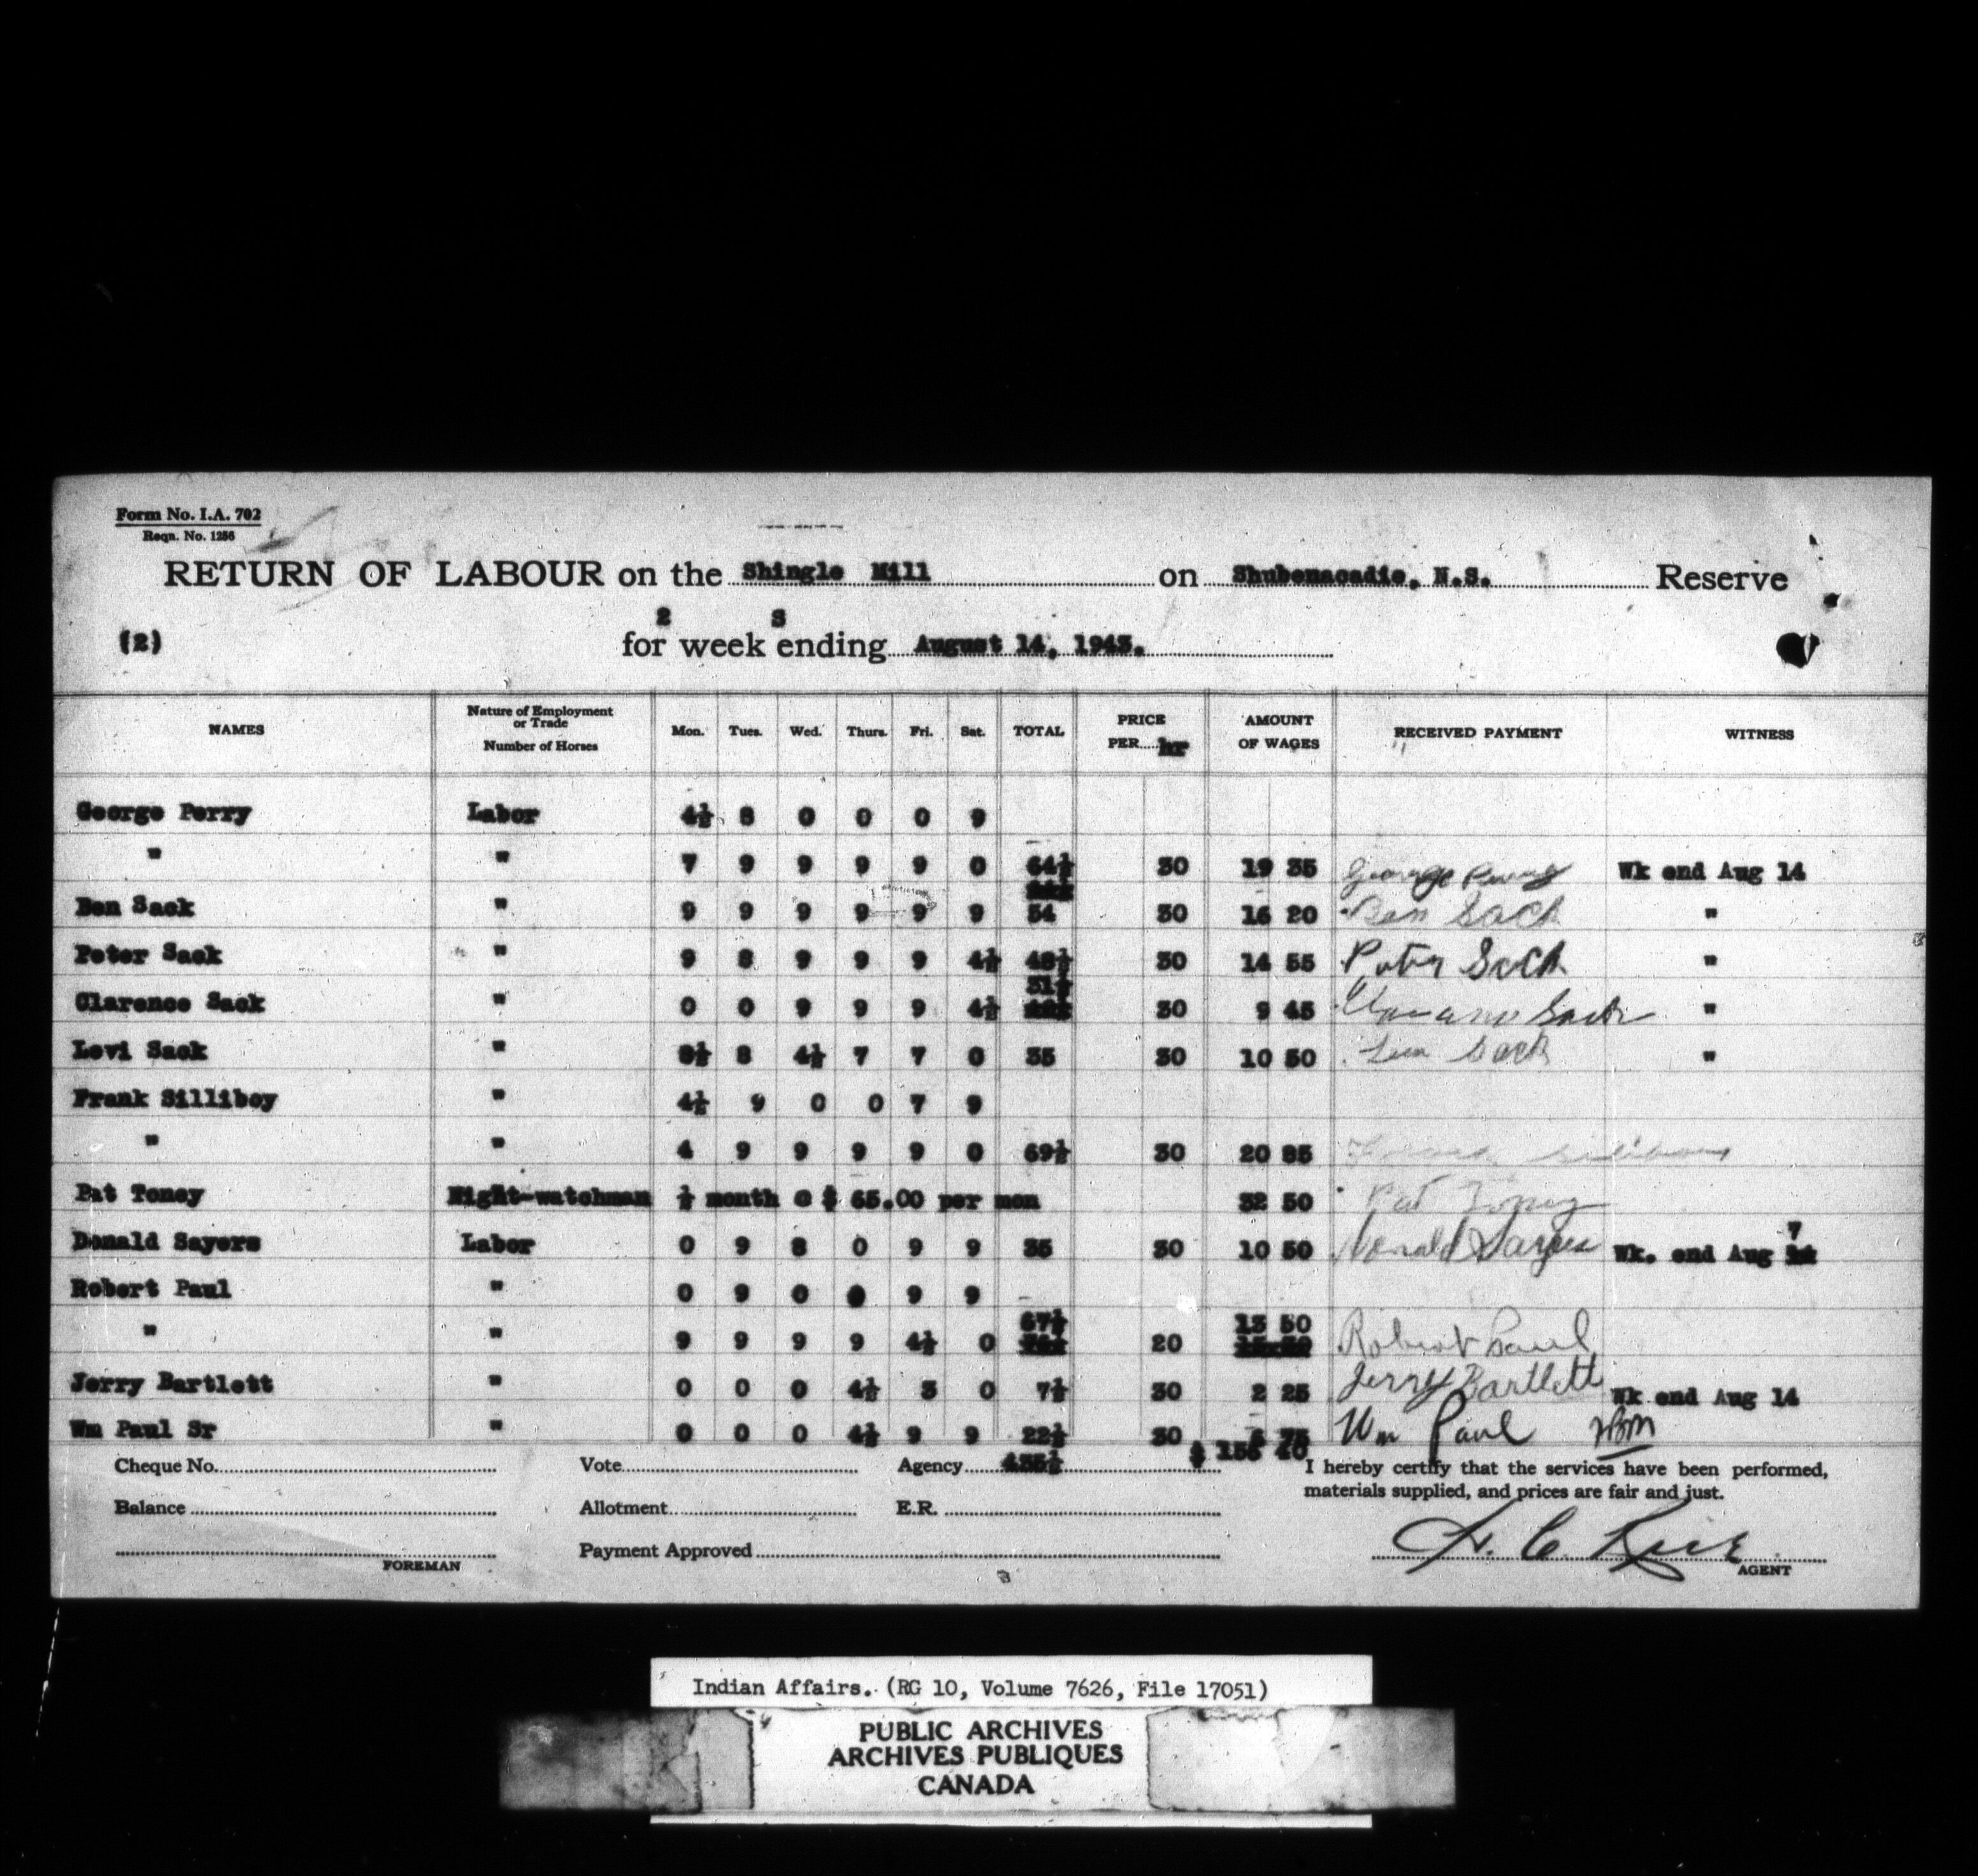 Form No. I.A. 702
Reqn. No. 1256
RETURN OF LABOUR on the Shingle Mill on Shubenacadie, N.S. Reserve
2 S
(2) for week ending August 14, 1943.
NAMES Nature of Employment or Trade Number of Horses Mon. Tues. Wed. Thurs. Fri. Sat. TOTAL PRICE PER hr AMOUNT OF WAGES RECEIVED PAYMENT WITNESS
George Perry Labor 4½ 8 0 0 0 9
" " 7 9 9 9 9 0 64½ 30 19 35 George Perry Wk end Aug 14
Ben Sack " 9 9 9 9 9 9 54 30 16 20 Ben Sack "
Peter Sack " 9 8 9 9 9 4½ 48½ 30 14 55 Peter Sack "
31½
Clarence Sack " 0 0 9 9 9 4½ 30 9 45 Sack "
Levi Sack " 8½ 8 4½ 7 7 0 35 30 10 50 Levi Sack "
Frank Silliboy " 4½ 9 0 0 7 9
" " 4 9 9 9 9 0 69½ 30 20 85 Frank
Pat Toney Night-watchman ½ month @ $ 65.00 per mon 32 50 Pat Toney
Donald Sayers Labor 0 9 8 0 9 9 35 30 10 50 Donald Sayers Wk. end Aug 7
Robert Paul " 0 9 0 0 9 9
67½ 13 50
" " 9 9 9 9 4½ 0 20 Robert Paul
Jerry Bartlett " 0 0 0 4½ 3 0 7½ 30 2 25 Jerry Bartlett Wk end Aug 14
Wm Paul Sr " 0 0 0 4½ 9 9 22½ 30 6 75 Wm Paul
$ 156 40
Cheque No. Vote Agency 435½ I hereby certify that the services have been performed,
materials supplied, and prices are fair and just.
Balance Allotment E.R.
Payment Approved H. C. Rice
FOREMAN AGENT
Indian Affairs. (RG 10, Volume 7626, File 17051)
PUBLIC ARCHIVES
ARCHIVES PUBLIQUES
CANADA